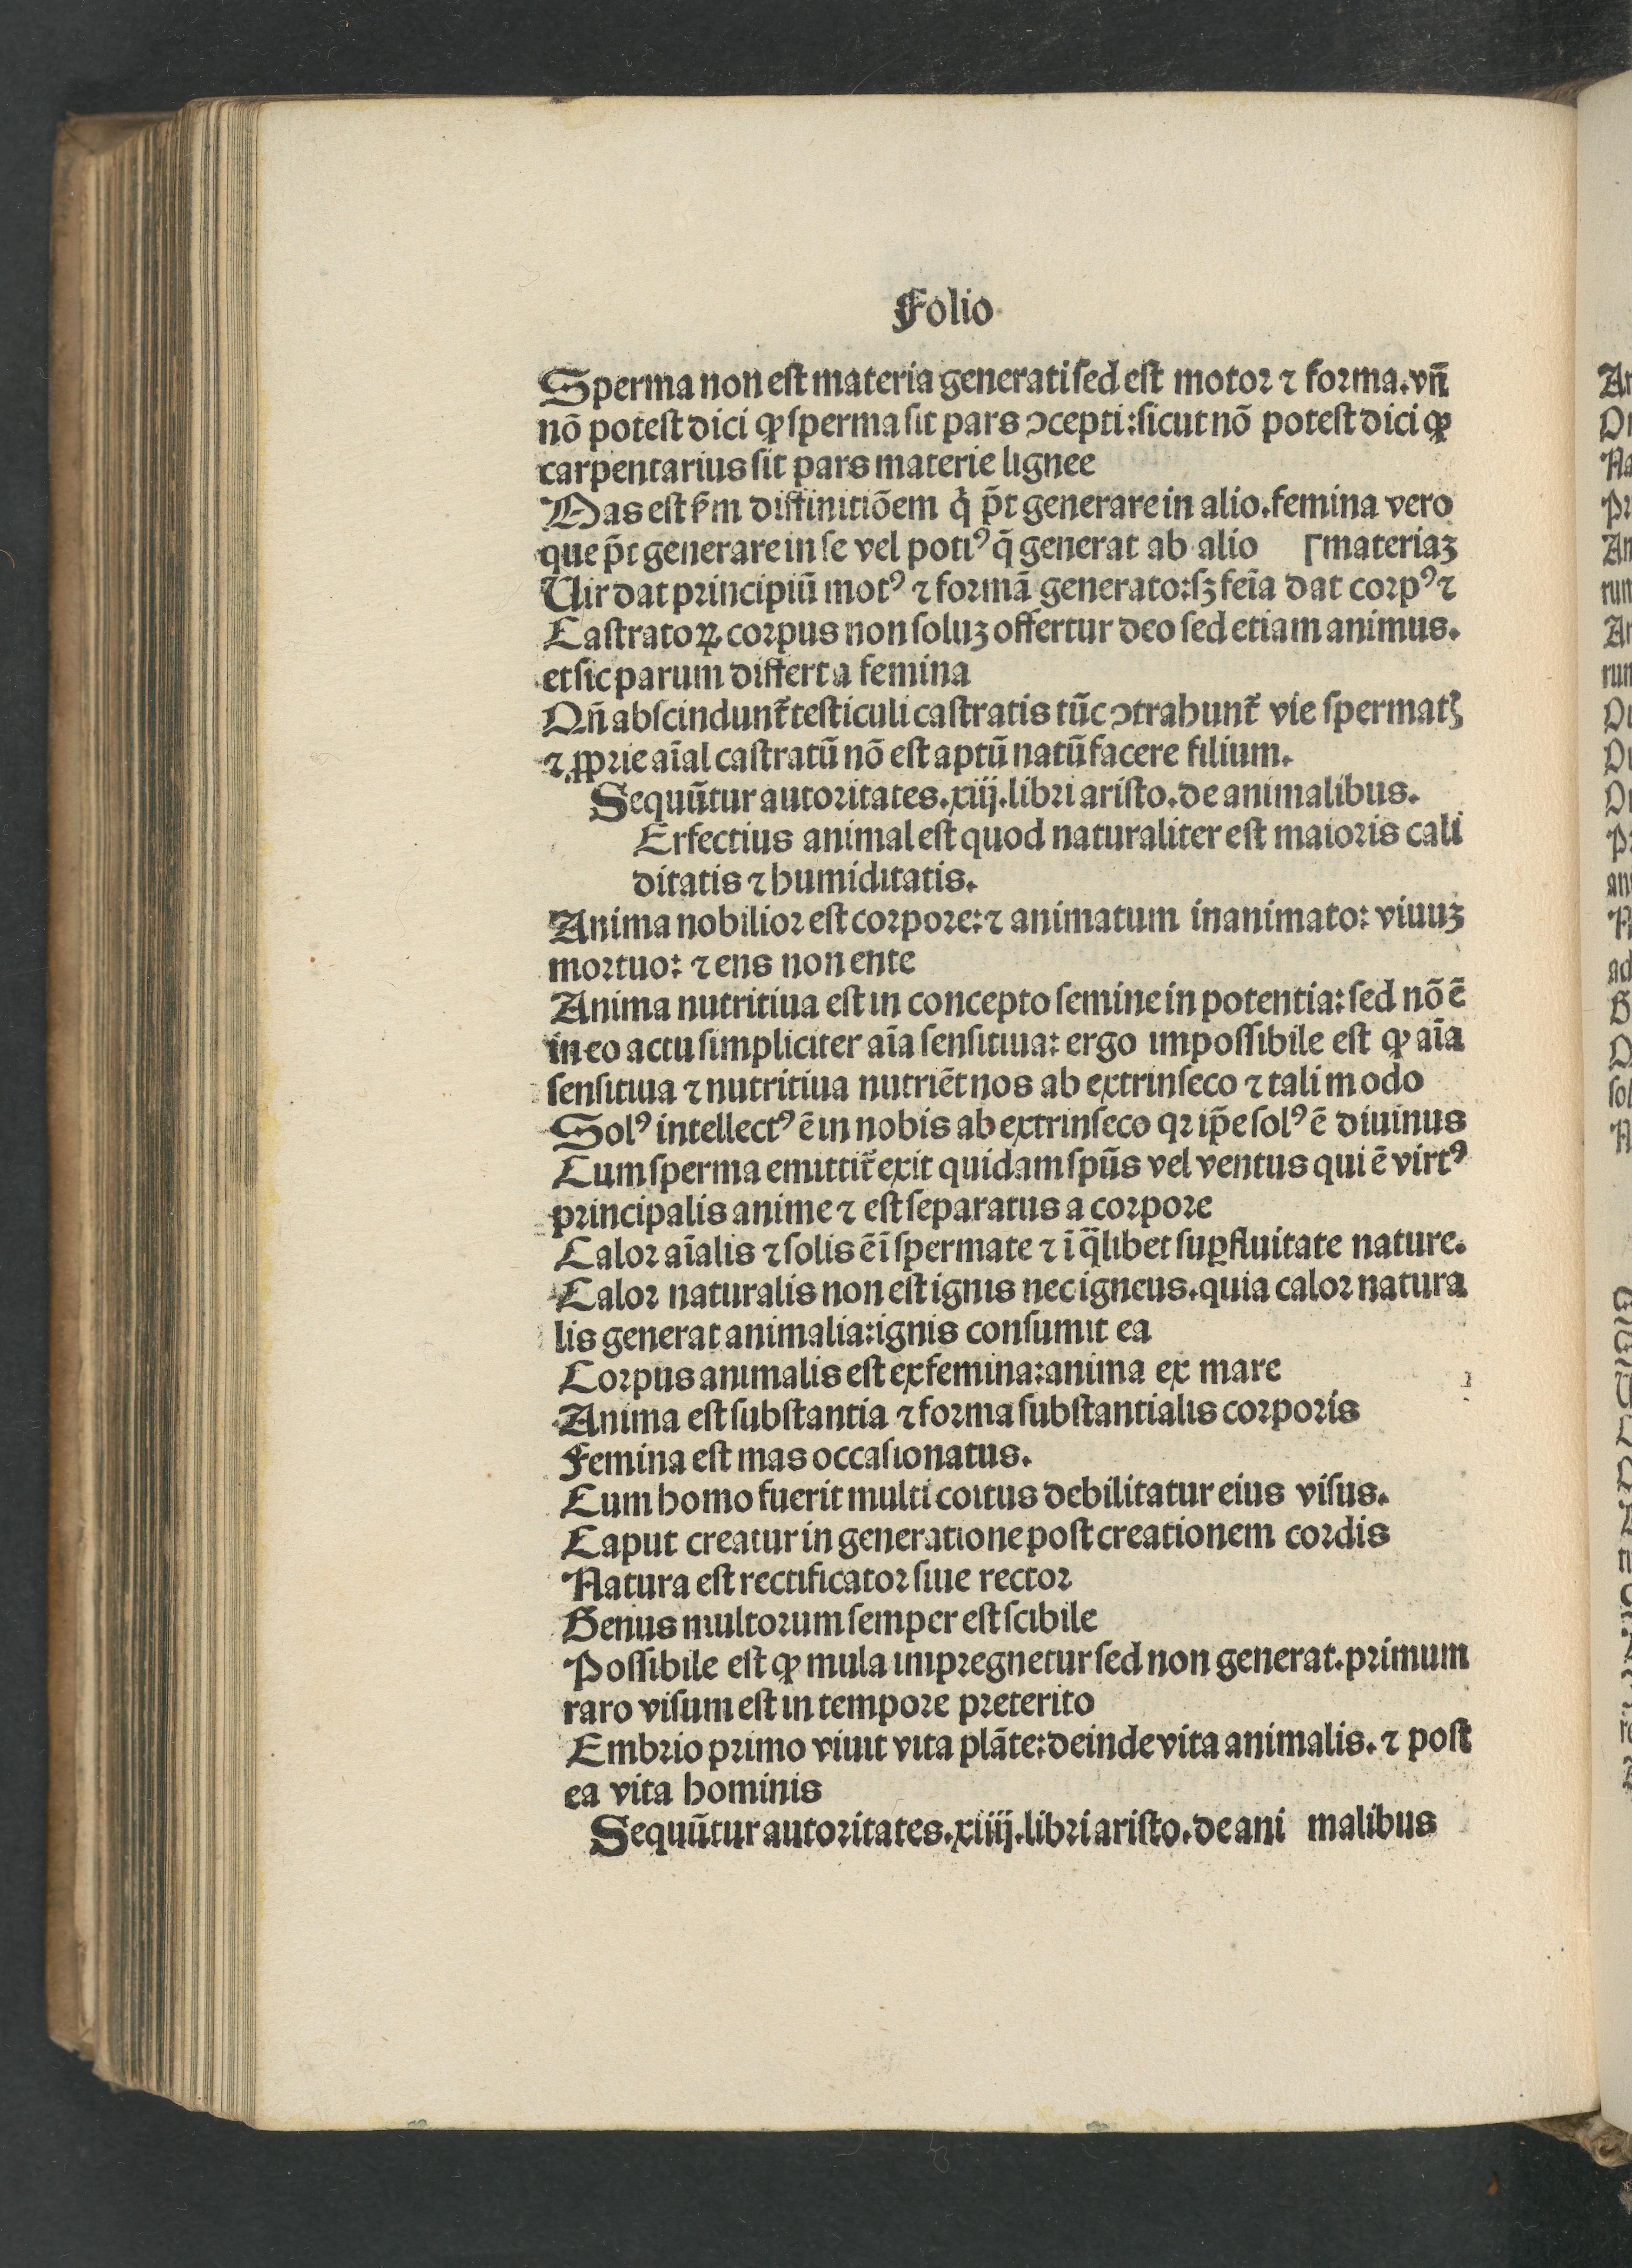 Folio
Sperma non est materia generati sed est motor ⁊ forma. vñ
nõ potest dici ꝙ sperma sit pars ɔcepti: sicut nõ potest dici ꝙ
carpentarius sit pars materie lignee
Mas est ẜm diffinitiõem q̇ p̄t generare in alio. femina vero
que p̄t generare in se vel potiꝰ q̃ generat ab alio ⌈materiaꝫ
Uir dat principiũ motꝰ ⁊ formã generato: sꝫ feĩa dat corpꝰ ⁊
Castratoꝝ corpus non soluꝫ offertur deo sed etiam animus.
et sic parum differt a femina
Qñ abscindunt᷑ testiculi castratis tũc ɔtrahunt᷑ vie spermatꝭ
⁊ ꝓprie aĩal castratũ nõ est aptũ natũ facere filium.
Sequũtur autoritates. xiij. libri aristo. de animalibus.
Erfectius animal est quod naturaliter est maioris cali
ditatis ⁊ humiditatis.
Anima nobilior est corpore: ⁊ animatum inanimato: viuuꝫ
mortuo: ⁊ ens non ente
Anima nutritiua est in concepto semine in potentia: sed nõ ẽ
in eo actu simpliciter aĩa sensitiua: ergo impossibile est ꝙ aĩa
sensitiua ⁊ nutritiua nutriẽt nos ab extrinseco ⁊ tali modo
Solꝰ intellectꝰ ẽ in nobis ab extrinseco qꝛ ip̃e solꝰ ẽ diuinus
Cum sperma emittit᷑ exit quidam spũs vel ventus qui ẽ virtꝰ
principalis anime ⁊ est separatus a corpore
Calor aĩalis ⁊ solis ẽ ĩ spermate ⁊ ĩ q̃libet suꝑfluitate nature.
Calor naturalis non est ignis nec igneus. quia calor natura
lis generat animalia: ignis consumit ea
Corpus animalis est ex femina: anima ex mare
Anima est substantia ⁊ forma substantialis corporis
Femina est mas occasionatus.
Cum homo fuerit multi coitus debilitatur eius visus.
Caput creatur in generatione post creationem cordis
Natura est rectificator siue rector
Genus multorum semper est scibile
Possibile est ꝙ mula impregnetur sed non generat. primum
raro visum est in tempore preterito
Embrio primo viuit vita plãte: deinde vita animalis. ⁊ post
ea vita hominis
Sequũtur autoritates. xiiij. libri aristo. de ani malibus